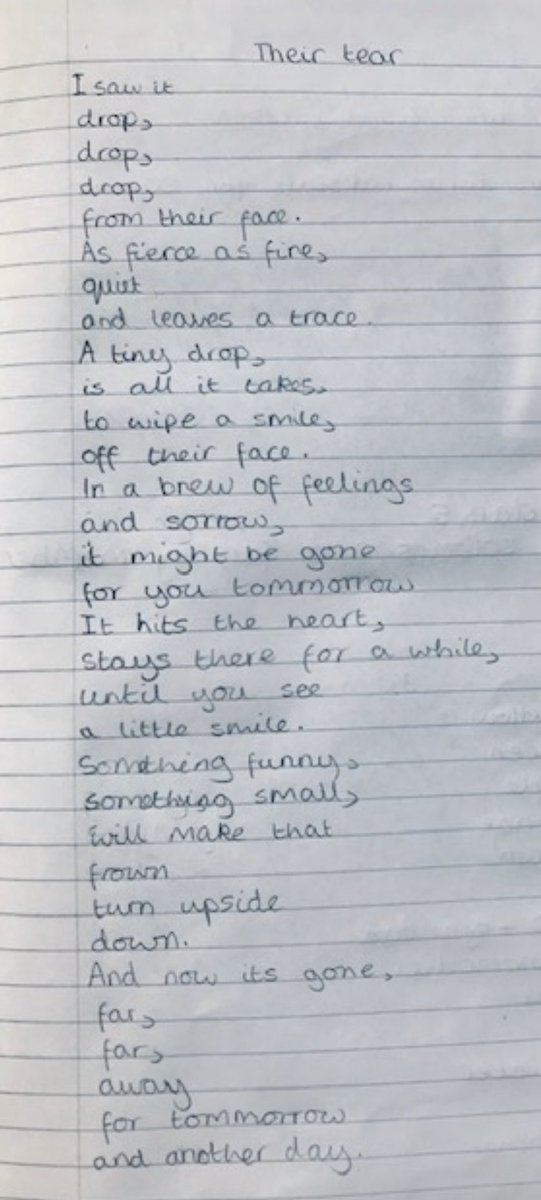 Their tear
I saw it
drop,
drop,
drop,
from their face.
As fierce as fire,
quiet
and leaves a trace.
A tiny drop,
is all it takes,
to wipe a smile,
off their face.
In a brew of feelings
and sorrow,
it might be gone
for you tommorrow
It hits the heart,
stays there for a while,
until you see
a little smile.
Something funny,
something small,
will make that
frown
turn upside
down.
And now its gone,
far,
far,
away
for tommorrow
and another day.